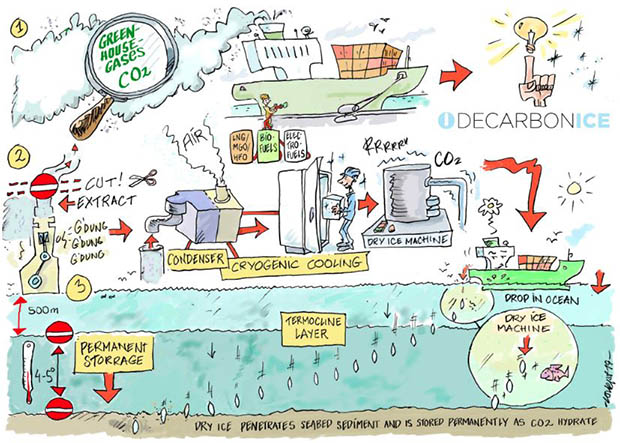 1
GREEN-
HOUSE-
GASES
CO2
LNG/
MGO/
HFO
BIO-
FUELS
ELEC
TRO-
FUELS
DECARBONICE
2
CUT!
EXTRACT
G'DUNG
G'DUNG
G'DUNG
AIR
CONDENSER
CRYOGENIC COOLING
RRRRRY
CO2
DRY ICE MACHINE
3
500m
4-5°
PERMANENT
STORRAGE
TERMOCLINE
LAYER
DROP IN OCEAN
DRY ICE
MACHINE
DRY ICE PENETRATES SEABED SEDIMENT AND IS STORED PERMANENTLY AS CO2 HYDRATE